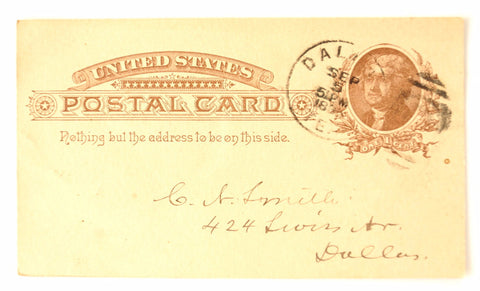 UNITED STATES
POSTAL CARD
Nothing but the address to be on this side.
DAL
SEP
C. N. Smith
424 Swiss Av.
Dallas.